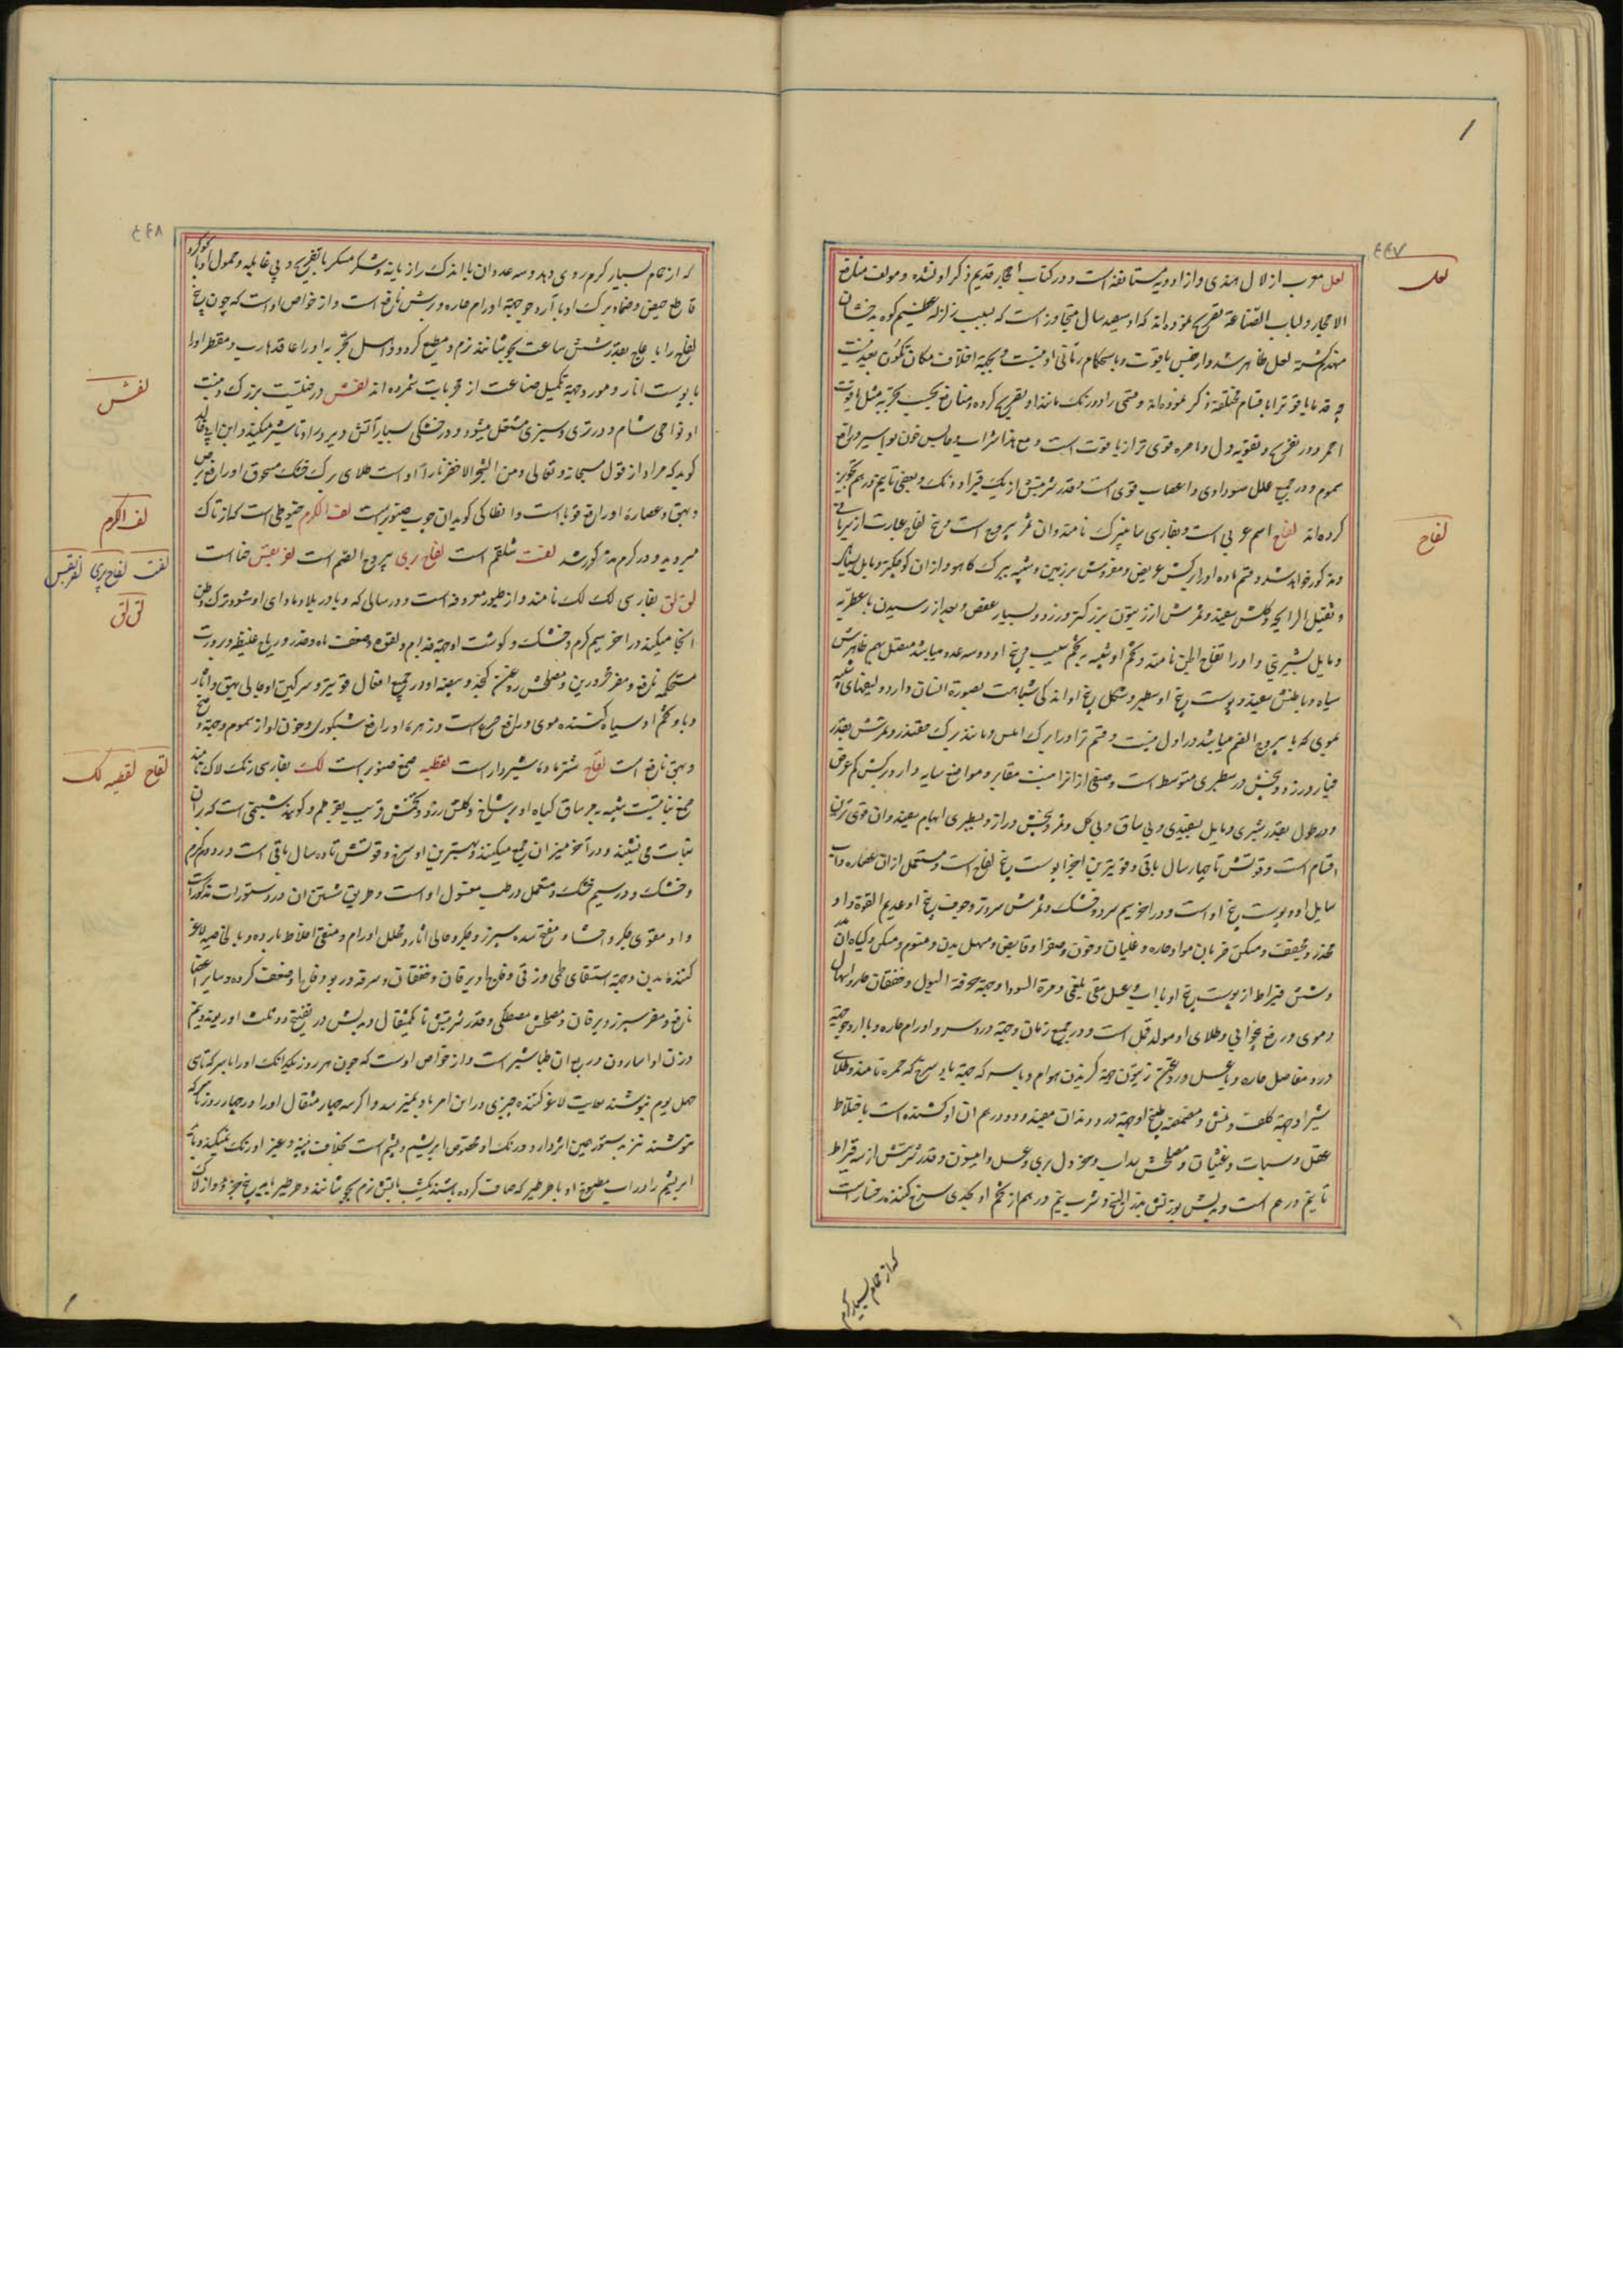 ٤٤٧
لعل
لعل معرب از لال هندی و از ادویه مستانفه است و در کتاب احجار قدیم ذکر او نشده و مولف منافع
الاحجار و لباب الصناعة تصریح نموده‌اند که او سیصد سال متجاوز است که بسبب زلزله عظیم کوه بدخشان
منهدم گشته لعل ظاهر شد و از جنس یاقوت و باستحکام رمانی او نیست و بجهة اختلاف مکان تکون بعید نیست
چه قدما یاقوت را باقسام مختلفه ذکر نموده‌اند و قسمی را در رنک مانند او تصریح کرده و منافع بحسب تجربه مثل یاقوت
احمر و در تفریح و تقویه دل و باصره قوی تر از یاقوت است و مع هذا شراب و حابس خون بواسیر و رافع
سموم و در جمیع علل سوداوی و اعصاب قوی است و قدر شربتش از یک قیراط و دانک و بعضی تا نیم درهم تجویز
کرده‌اند لفاح اسم عربی است و بفارسی سابیزک نامند و ان ثمر یبروح است و بیخ لفاح عبارت از یبروح
لفاح
مذکور خواهد شد و قسم ماده او را برکش عریض و مفروش بر زمین و شبیه ببرک کاهو و از ان کوچکتر و مایل بسیاهی
و ثقیل الرایحه و کلش سفید و ثمرش از زیتون بزرکتر و زرد و بسیار عفص و بعد از رسیدن با عطریه
و مایل بشیرینی و او را تفاح الجن نامند و تخم او شبیه به تخم سیب و بیخ او دو سه عدد میباشد متصل بهم ظاهرش
سیاه و باطنش سفید و پوست بیخ او سطبر و شکل بیخ او اندکی شباهت بصورة انسان دارد و لیفهای شبیه
بموی که با یبروح الصنم میباشد در اول نیست و قسم نر او را برک املس و مانند برک چغندر و ثمرش بقدر
خیار و زرد و بیخش در سطبری متوسط است و صنفی از انرا منبت مقابر و مواضع سایه دار و برکش کم عرض
و در طول بقدر شبری و مایل بسفیدی و بی ساق و بی کل و ثمر و بیخش دراز و بسطبری ابهام سفید و ان قوی ترین
اقسام است و قوتش تا چهار سال باقی و قویترین اجزا پوست بیخ لفاح است و مستعمل از ان عصاره و اب
سایل او و پوست بیخ او است و در اخر سیم سرد و خشک و ثمرش سردتر و جوف بیخ او عدیم القوة و او
مخدر و مجفف و مسکن ضربان مواد حاره و غلیان و خون و صفرا و قابض و مسهل بدن و منوم و مسکن و کیاه ان
و شش قیراط از پوست بیخ او با اب و عسل مقی بلغمی و مرة السودا و جهة حرقة البول و خفقان حار و اسهال
دموی و رفع بیخوابی و طلای او مولد قمل است و در جمیع زمان و جهة دردسر و اورام حاره و با ارد جو جهة
درد مفاصل حاره و با عسل و روغن زیتون جهة کزیدن هوام و با سرکه جهة باد سرخ که حمره نامند و طلای
شیر او جهة کلف و نمش و مضمضه طبیخ او جهة درد دندان مفید و دو درهم ان او کشنده است باختلاط
عقل و سبات و غثیان و مصلحش سداب و خردل بری و عسل و انیسون و قدر شربتش از سه قیراط
تا نیم درهم است و بدلش بوزنش بذر البنج و شرب نیم درهم از تخم او بحدی سرخ کننده رخسار است
که از حمام بسیار گرم
٤٤٨
که از حمام بسیار کرم روی دهد و سه عدد ان با اندک رازیانه و شکر مسکر با تفریح و بی غایله و حمول او با کوکرد
قاطع حیض و ضماد برک او با آرد جو جهة اورام حاره و برش نافع است و از خواص او است که چون بیخ
لفاح را با عاج بقدر شش ساعت بجوشانند نرم و مطیع کردد و اهل تجربه او را عاقد هارب و مقطر او را
با پوست انار و مورد جهة تکمیل صناعت از مجربات شمرده‌اند لفش درختیست بزرک و منبت
لفش
او نواحی شام و در تری و سبزی مشتعل میشود و در خشکی بسیار آتش دیر در او تاثیر میکند و ابن ابی خالد
کوید که مراد از قول سبحانه و تعالی و من الشجر الاخضر نارا او است طلای برک خشک مسحوق او رافع برص
و بهق و عصاره او رافع قوبا است و انطاکی کوید ان حب صنوبر است لف الکرم خیوطی است که از تاک
لف الکرم
میروید و در کرم مذکور شد لفت شلغم است لفاح بری یبروح الصنم است لفریقس خنا است
لفت لفاح بری لفریقس
لق لق بفارسی لک لک نامند و از طیور معروفه است و در سالی که وبا در بلاد ماوای او شود ترک وطن
لق لق
انجا میکند در اخر سیم کرم و خشک و کوشت او جهة جذام و لقوه و ضعف باه و خدر و ریاح غلیظه و برودت
مستحکمه نافع و مضر محرورین و مصلحش روغن کنجد و بیضه او در جمیع افعال قویتر و سرکین او جالی بهق و اثار
و با و تخم او سیاه کننده موی و رافع صرع است و زهره او رافع شبکوری و خون او از سموم و جهة وضح
و بهق نافع است لقاح شتر ماده شیردار است لقطیه صمغ صنوبر است لک بفارسی رنک لاک نامند
لقاح لقطیه لک
صمغ نباتیست شبیه به جو ساق کیاه او پرشاخ و کلش زرد و تخمش قریب بقرطم و کویند شبنمی است که بر ان
نبات می نشیند و در آخر میزان جمع میکنند و بهترین او سرخ و قوتش تا ده سال باقی است در دوم کرم
و خشک و در سیم خشک و مستعمل در طب مغسول او است و طریق شستن ان در دستورات مذکور است
و او مقوی جکر و احشا و مفتح سده سپرز و جکر و جالی اثار و محلل اورام و منقی اخلاط بارده و بالخاصیه لاغر
کننده بدن و جهة استسقای طبلی و زقی و فلج و یرقان و خفقان و سرفه و ربو و فلج و ضعف کرده و سایر اعضا
نافع و مضر سپرز و یرقان و مصلحش مصطکی و قدر شربتش تا یکمثقال و بدلش در تفتیح دو ثلث او ریوند و نیم
وزن او اسارون و ربع ان طباشیر است و از خواص اوست که چون هر روز یکدانک او را با سرکه تا
چهل یوم بنوشند بغایت لاغر کننده چیزی در این امر باو نمیرسد و اگر سه چهار مثقال او را در چهار روز با سرکه
بنوشند نیز بدستور همین اثر دارد و رنک او مخصوص ابریشم و پشم است بخلاف پنبه و غیر او رنک نمیکند و باید
ابریشم را در اب مطبوخ او با طرطیر که صاف کرده باشند یکشب باتش نرم بجوشانند و طرطیر باید پنج جزو و از لاک